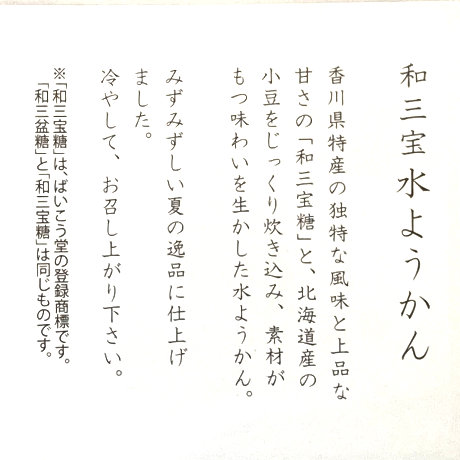 和三宝水ようかん
香川県特産の独特な風味と上品な
甘さの「和三宝糖」と、北海道産の
小豆をじっくり炊き込み、素材が
もつ味わいを生かした水ようかん。
みずみずしい夏の逸品に仕上げ
ました。
冷やして、お召し上がり下さい。
※「和三宝糖」は、ばいこう堂の登録商標です。
「和三盆糖」と「和三宝糖」は同じものです。